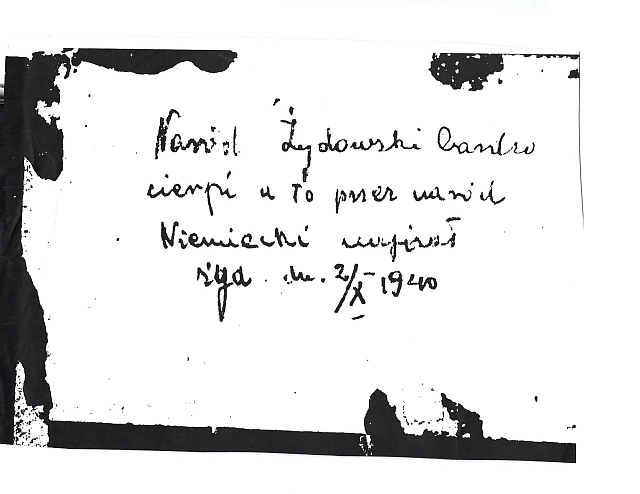 Naród Żydowski bardzo
cierpi a to przez naród
Niemiecki
dn. 2/X 1940